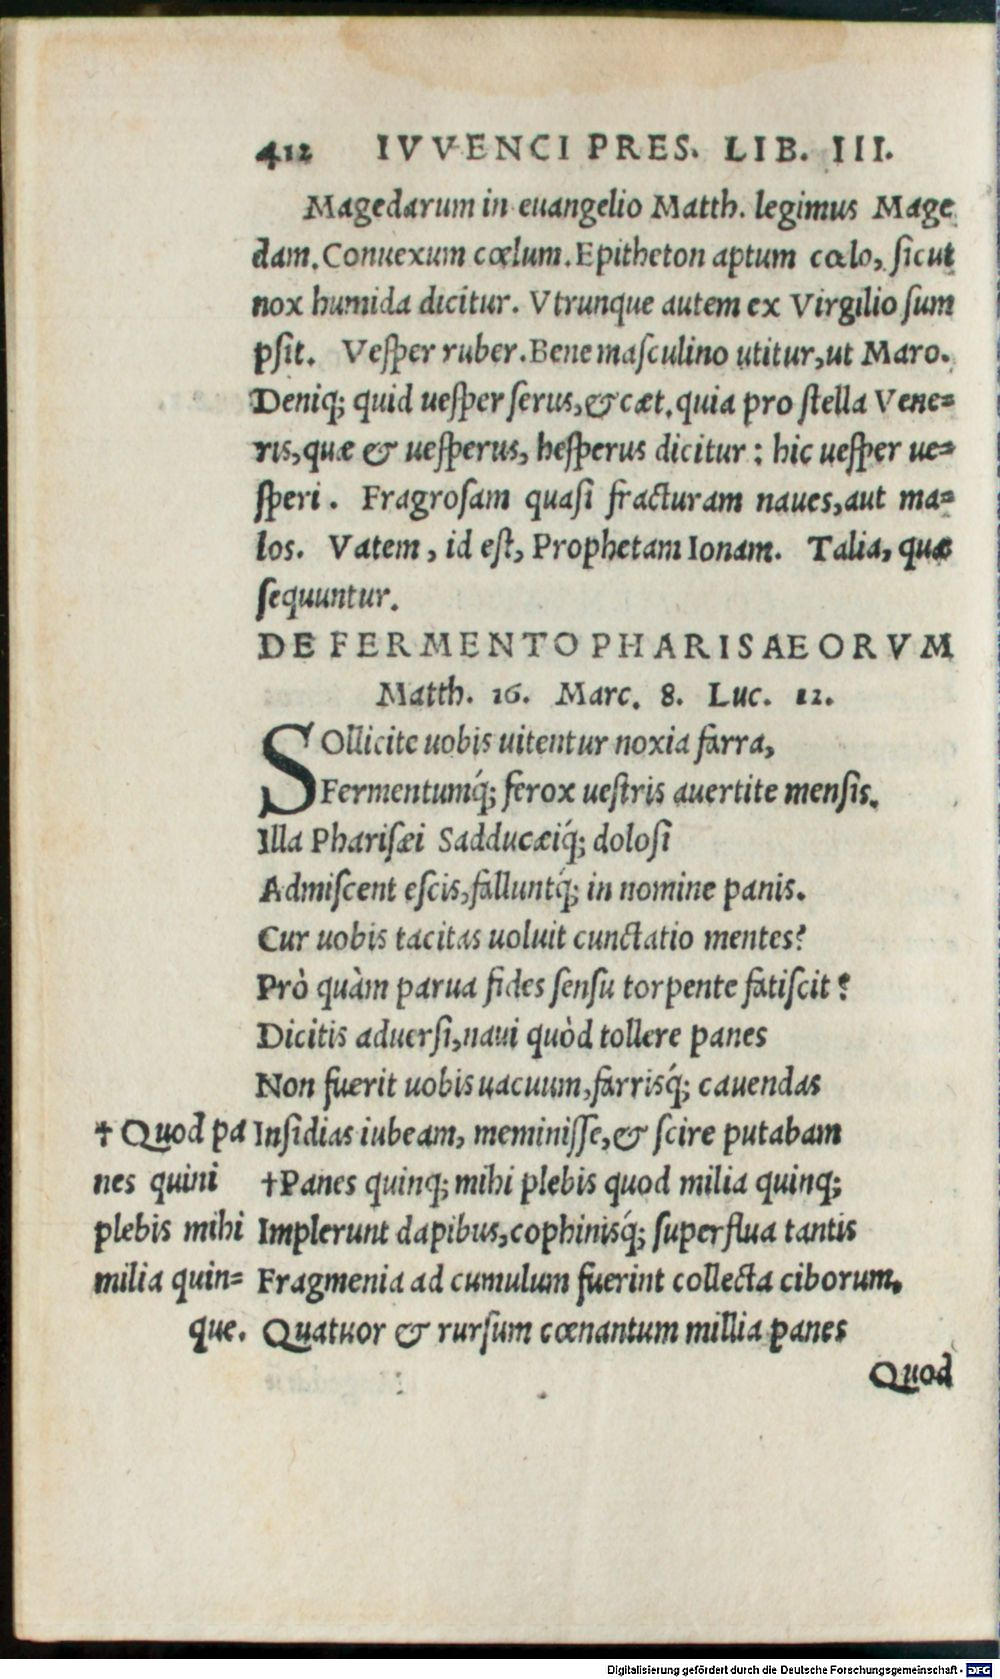 412 IVVENCI PRES. LIB. III.
Magedarum in euangelio Matth. legimus Mage
dam. Conuexum cœlum. Epitheton aptum cœlo, ſicut
nox humida dicitur. Vtrunque autem ex Virgilio ſum
pſit. Veſper ruber. Bene maſculino utitur, ut Maro.
Deniq; quid ueſper ſerus, & cæt. quia pro ſtella Vene=
ris, quæ & ueſperus, heſperus dicitur: hic ueſper ue=
ſperi. Fragroſam quaſi fracturam naues, aut ma=
los. Vatem, id eſt, Prophetam Ionam. Talia, quæ
ſequuntur.
DE FERMENTO PHARISAEORVM
Matth. 16. Marc. 8. Luc. 12.
SOllicite uobis uitentur noxia farra,
Fermentumq́; ferox ueſtris auertite menſis.
Illa Phariſæi Sadducæiq́; doloſi
Admiſcent eſcis, falluntq́; in nomine panis.
Cur uobis tacitas uoluit cunctatio mentes?
Prò quàm parua fides ſenſu torpente fatiſcit?
Dicitis aduerſi, naui quòd tollere panes
Non fuerit uobis uacuum, farrisq́; cauendas
Inſidias iubeam, meminiſſe, & ſcire putabam
†Panes quinq; mihi plebis quod milia quinq;
Implerunt dapibus, cophinisq́; ſuperflua tantis
Fragmenia ad cumulum fuerint collecta ciborum.
Quatuor & rurſum cœnantum millia panes
Quod
† Quod pa
nes quini
plebis mihi
milia quin=
que.
Digitalisierung gefördert durch die Deutsche Forschungsgemeinschaft - DFG